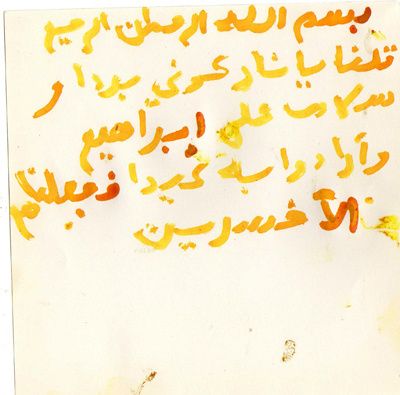 بسم الله الرحمن الرحيم
قلنا يا نار كوني بردا و
سلاما على إبراهيم
وأرادوا به كيدا فجعلناهم
الأخسرين